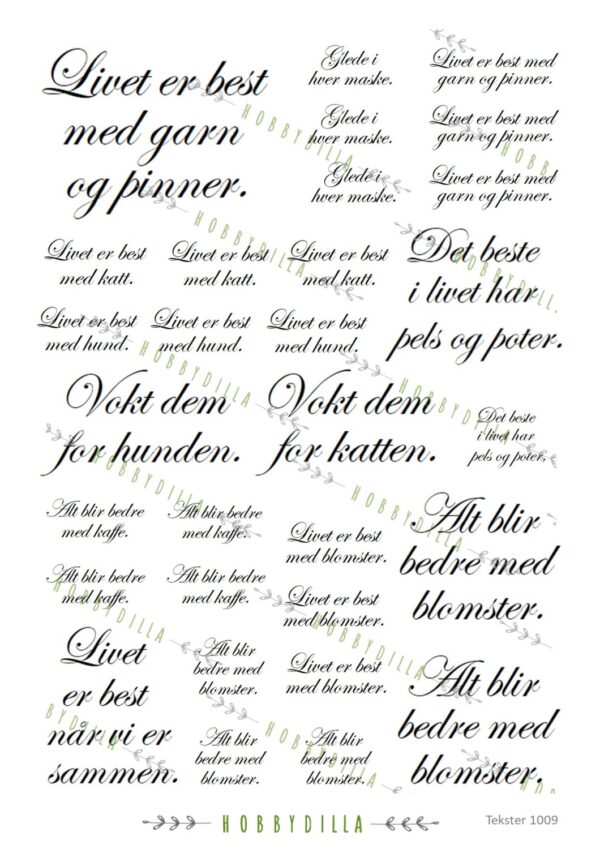 Livet er best
med garn
og pinner.
Glede i
hver maske.
Glede i
hver maske.
Glede i
hver maske.
Livet er best med
garn og pinner.
Livet er best med
garn og pinner.
Livet er best med
garn og pinner.
Livet er best
med katt.
Livet er best
med katt.
Livet er best
med katt.
Det beste
i livet har
pels og poter.
Livet er best
med hund.
Livet er best
med hund.
Livet er best
med hund.
Vokt dem
for hunden.
Vokt dem
for katten.
Det beste
i livet har
pels og poter.
Alt blir bedre
med kaffe.
Alt blir bedre
med kaffe.
Livet er best
med blomster.
Alt blir
bedre med
blomster.
Alt blir bedre
med kaffe.
Alt blir bedre
med kaffe.
Livet er best
med blomster.
Livet
er best
når vi er
sammen.
Alt blir
bedre med
blomster.
Livet er best
med blomster.
Alt blir
bedre med
blomster.
Alt blir
bedre med
blomster.
Alt blir
bedre med
blomster.
HOBBYDILLA
Tekster 1009